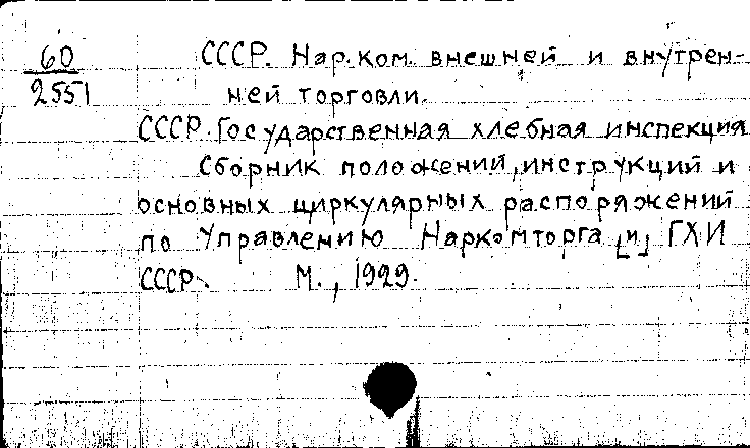 60
2551
СССР. Нар.ком. внешней и внутрен-
ней торговли.
СССР. Государственная хлебная инспекция
Сборник положений, инструкций и
основных циркулярных распоряжений
по Управлению Наркомторга [и] ГХИ
СССР. М., 1929.